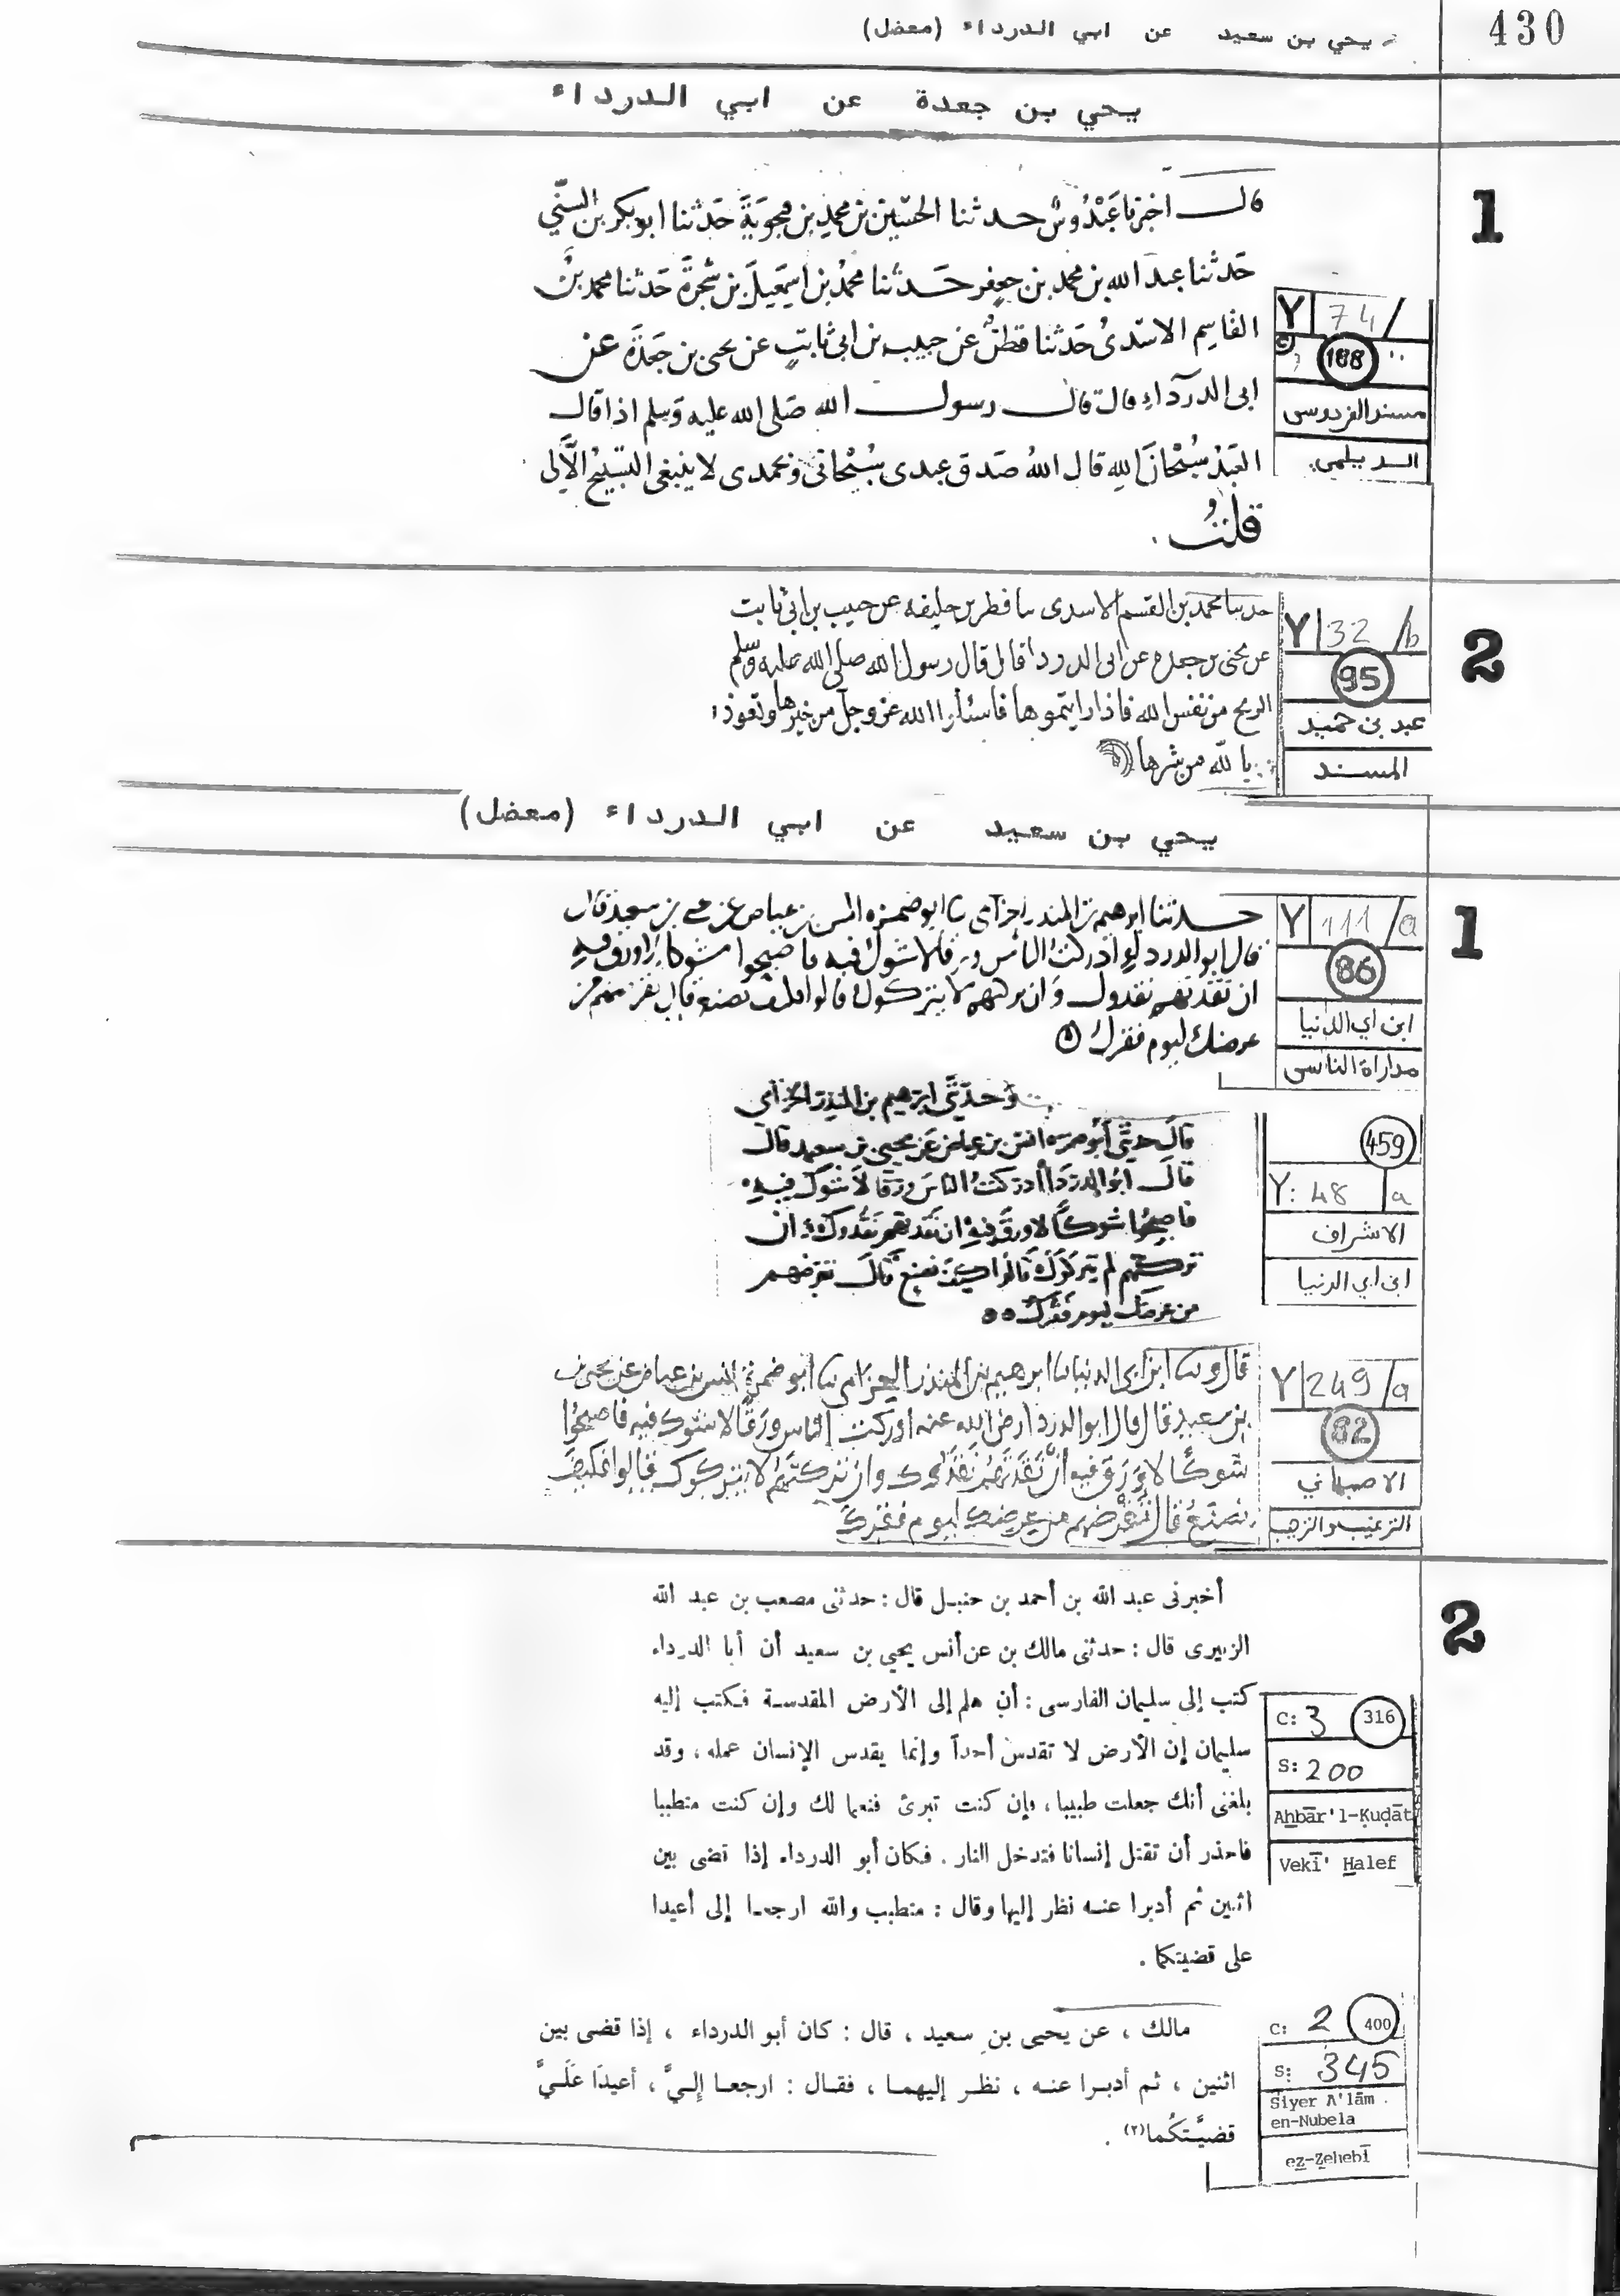 430
يحي بن سعيد عن ابي الدرداء (معضل)
يحي بن جعدة عن ابي الدرداء
1
قال اخبرنا عَبْدُوسٌ حدثنا الحسَين بن محمد بن حَدثنا ابو بكر بن السنّي
حَدثنا عبد الله بن محمد بن جعفر حَدثنا محمدُ بن اسمَعيل بن حَدثنا محمد بنُ
القاسِم الاسَدىُ حَدثنا عن حبيب بن ابى ثابتٍ عن يحيى بن جَعدَة عن
ابى الدرداءِ قال قال رسول الله صَلى الله عليه وَسلم اذا قال
العَبدُ سُبْحانَ اللهِ قال اللهُ صَدق عبدى سُبْحانى وبحمدى لا ينبغى التسبيحُ الَّا لى
قلتُ
Y 74/
188
مسند الفردوسى
الديلمي
2
حدىنا محمد بن القسم الاسدى ىنا فطر بن خليفه عن حبيب بن ابى ثابت
عن يحيى بن جعده عن ابى الدردا قال قال رسول الله صلى الله عليه وسلم
الريح من نفس الله فاذا رايتموها فاسئلوا الله عز وجل من خيرها وتعوذوا
بالله من شرها
Y 32/b
95
عبد بن حميد
المسند
يحي بن سعيد عن ابي الدرداء (معضل)
1
حدثنا ابرهيم بن المنذر الحزامى ىا ابو ضمره انس بن عياض عن يحيى بن سعيد قال
قال ابو الدردا ادركت الناس ورقا لا شوك فيه فاصبحوا شوكا لا ورق فيه
ان نقدتهم نقدوك وان تركتهم لا يتركوك قالوا فكيف نصنع قال تقرضهم من
عرضك ليوم فقرك
Y 111/a
86
ابن ابي الدنيا
مداراة الناس
وحدّثنى ابرهيم بن المنذر الحزامي
قال حدثنى أبو ضمره انس بن عياض عن يحيى بن سعيد قال
قال ابُو الدردَا أدركتُ الناسَ ورقا لا شوكَ فيهِ
فاصبحُوا شوكًا لا ورقَ فيهِ ان نقدتهم نقدوك وان
تركتهم لم يتركوك قالوا كيف نصنع قال تقرضهم
من عرضك ليوم فقرك
459
Y: 48 a
الاشراف
ابن ابي الدنيا
قال وىنا ابن ابى الدنيا ىنا ابرهيم بن المنذر الحزامى ىنا ابو ضمرة انس بن عياض عن يحيى
بن سعيد قال قال ابو الدردا رضى الله عنه ادركت الناس ورقًا لا شوك فيه فاصبحُوا
شوكًا لا وَرَق فيه اِنْ نَقَدْتَهُمْ نَقَدُوك وان تركتَهُمْ لا يتركوك قالوا فكيفَ
نصنعُ قال تُقْرضهم من عرضك ليوم فقرك
Y 249/a
82
الاصبهاني
الترغيب والترهيب
2
أخبرنى عبد الله بن أحمد بن حنبل قال : حدثنى مصعب بن عبد الله
الزبيرى قال : حدثنى مالك بن عن أنس يحيي بن سعيد أن أبا الدرداء
كتب إلى سليمان الفارسى : أن هلم إلى الأرض المقدسة فكتب إليه
سليمان إن الأرض لا تقدس أحداً وإنما يقدس الإنسان عمله ، وقد
بلغنى أنك جعلت طبيبا ، فإن كنت تبرئ فنعما لك وإن كنت متطببا
فاحذر أن تقتل إنسانا فتدخل النار . فكان أبو الدرداء إذا قضى بين
اثنين ثم أدبرا عنه نظر إليها وقال : متطبب والله ارجعا إلى أعيدا
على قضيتكما .
C: 3 316
S: 200
Ahbār'l-Ḳuḍāt
Vekī' Halef
مالك ، عن يحيى بن سعيد ، قال : كان أبو الدرداء ، إذا قضى بين
اثنين ، ثم أدبرا عنه ، نظر إليهما ، فقال : ارجعا إليَّ ، أعيدَا عَلَيَّ
قضيَّتكُما(٢) .
C: 2 400
S: 345
Siyer A'lām
en-Nubela
ez-Zehebī